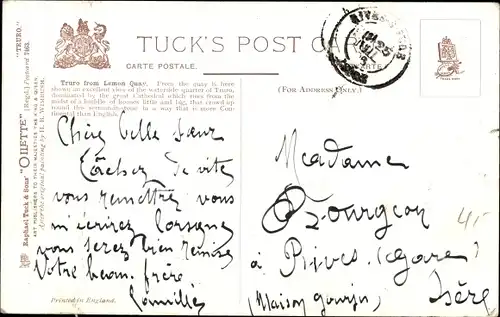 "TRURO."
Raphael Tuck & Sons' "OILETTE" (Regd.) Postcard
ART PUBLISHERS TO THEIR MAJESTIES THE KING & QUEEN.
After the original painting by H. B. Wimbush.
TUCK'S POST CA
CARTE POSTALE.
Truro from Lemon Quay. From the quay is here
shown an excellent view of the waterside quarter of Truro,
dominated by the great Cathedral which rises from the
midst of a huddle of houses little and big, that crowd up
round this in a way that is more Con-
tinental than English.
(FOR ADDRESS ONLY.)
Chère belle sœur
Tâchez de vite
vous remettre vous
m'écrirez lorsque
vous serez bien remise
Votre beau frère
Camille
Printed in England.
Madame
Bourgeon
à Rives (gare)
(Maison Isère
4,-